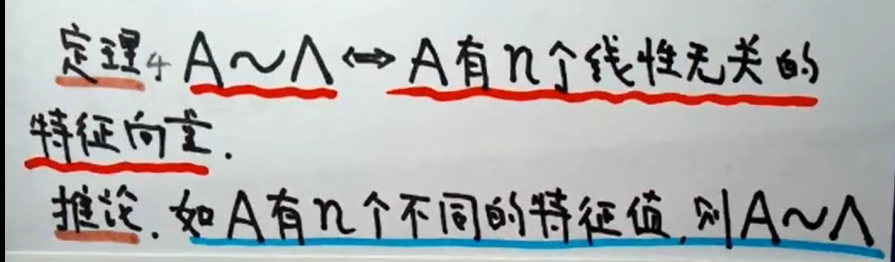 定理4 A~Λ⇔A有n个线性无关的
特征向量.
推论.如A有n个不同的特征值,则A~Λ